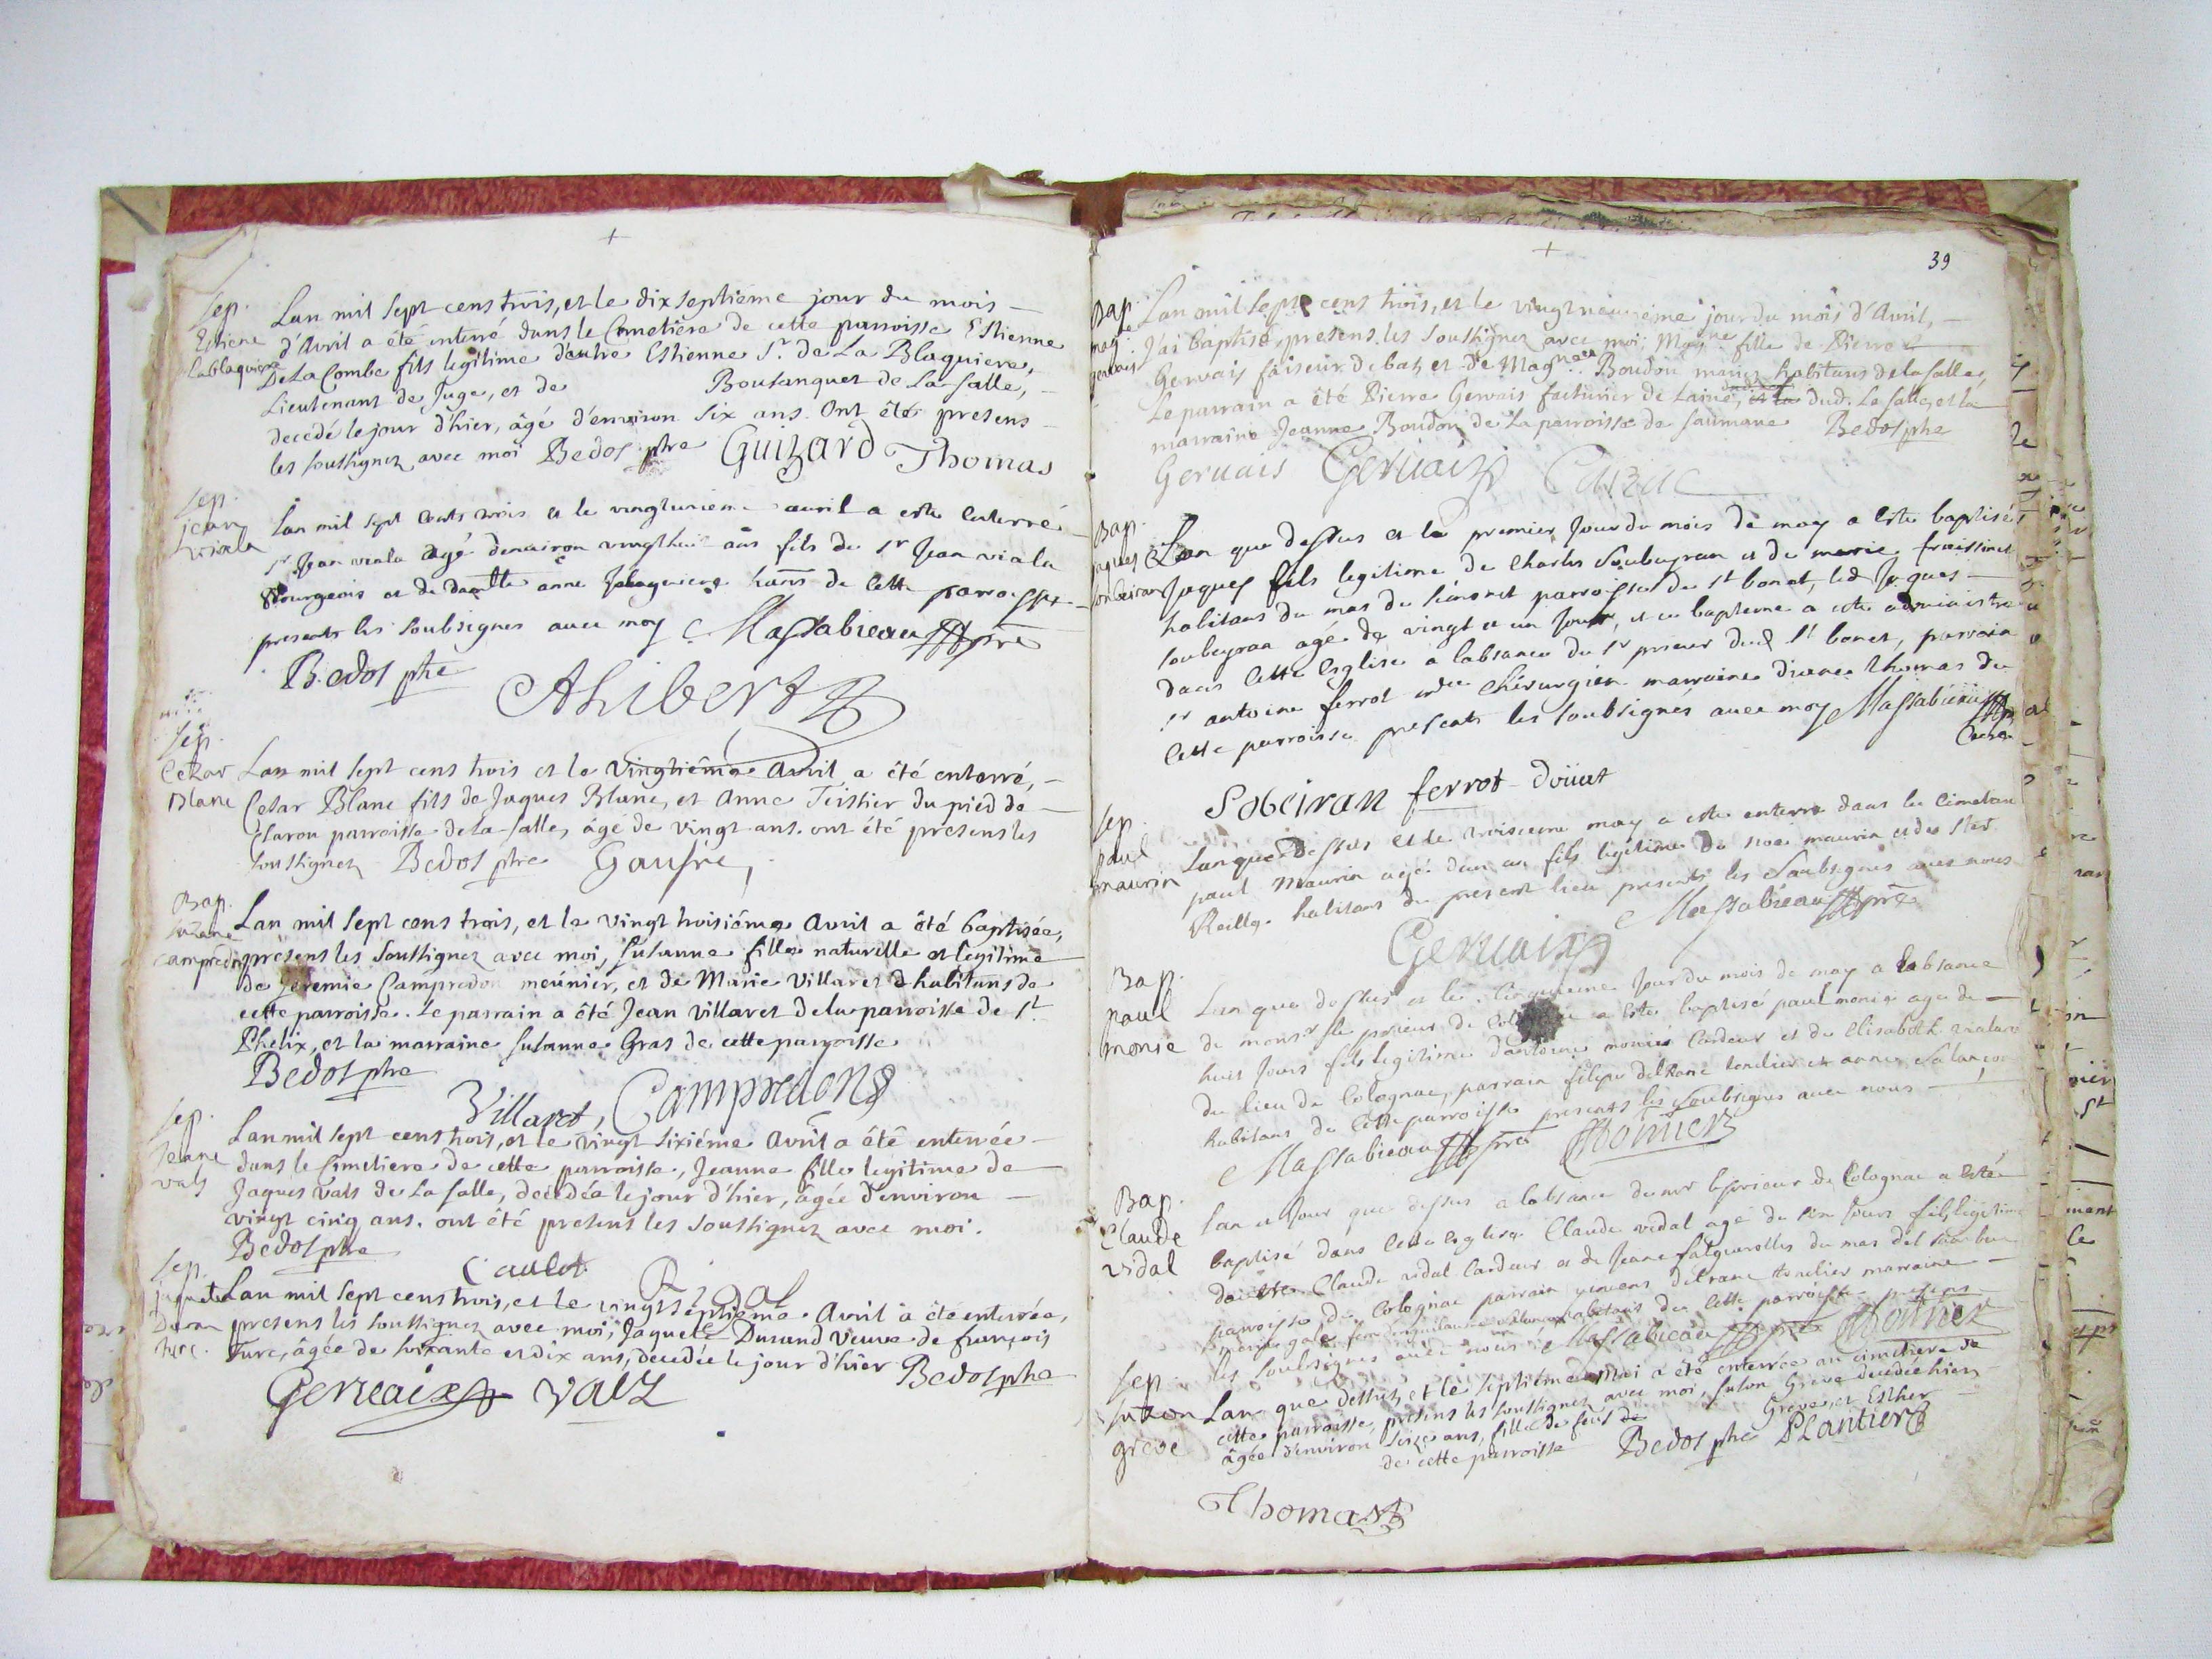 +
Sep.
Estiene
Lablaquiere
Lan mil sept cens trois, et le dix septiéme jour du mois
d'Avril a été enterré dans le Cimetiere de cette parroisse Estienne
De La Combe fils legitime d'autre Estienne Sr. de La Blaquiere,
Lieutenant de Juge, et de Boulanquet de La salle,
decedé le jour d'hier, âgé d'environ six ans. Ont été presens
les soussignez avec moi Bedos ptre Guizard Thomas
Sep.
jean
viala
Lan mil sept cents trois et le vingtunieme auril a este enterré
sr Jean viala agé denuiron vingthuit ans fils de sr Jean viala
Bourgeois et de damlle anne habns de cette parroisse
presents les soubsignes auec moy Massabieau ptre
Bedos ptre
Ahibert
Sep.
Cezar
Blanc
Lan mil sept cens trois et le vingtiéme Avril a été enterré,
Cesar Blanc fils de Jaques Blanc, et Anne Teissier du pied de
Clarou parroisse de La salle, âgé de vingt ans. ont été presens les
soussignez Bedos ptre Gaufre,
Bap.
Suzane
Campredon
Lan mil sept cens trois, et le vingt troisiéme Avril a été baptisée,
présens les soussignez avec moi, Susanne fille naturelle et legitime
de Jeremie Campredon meúnier, et de Marie Villaret habitans de
cette parroisse. Le parrain a été Jean Villaret de la parroisse de St.
Phelix, et la marraine Susanne Gras de cette parroisse
Bedos ptre
Villaret, Campredon
Sep.
Jeane
vals
Lan mil sept cens trois, et le vingt sixiéme Avril a été enterrée
dans le simetiere de cette parroisse, Jeanne fille legitime de
Jaques Vals de La salle, decedéa le jour d'hier, âgée d'environ
vingt cinq ans. ont été presens les soussignez avec moi.
Bedos ptre
Caulet Ridal
Sep.
jaquete
Duran
turc.
Lan mil sept cens trois, et le vingt séptiéme Avril a été enterrée,
presens les soussignez avec moi, Jaquete Durand Veuve de françois
Turc, âgée de soixante et dix ans, decedée le jour d'hier Bedos ptre
Gervais Valz
+
39
Bap.
mag.
gervais
Lan mil sept cens trois, et le vingt neuviéme jour du mois d'Avril,
J'ai baptisé, presens les soussignez avec moi, Magne fille de Pierre
Gervais faiseur de bas et de Magne Boudon mariés habitans de la salle,
Le parrain a été Pierre Gervais facturier de Laine, dud. La salle, et la
marraine Jeanne Boudon de La parroisse de Saumane Bedos ptre
Gervais Gervais Cauzac
Bap.
jaques
soubeiran
Lan que dessus et le premier Jour du mois de may a este baptisé
Jaques fils legitime de Charles Soubeyran et de marie fraissinet
habitans du mas de parroisse de st bonet, led Jaques
soubeyran agé de vingt et un Jour, et ce bapteme a este administré
dans cette Esglise a labsance du sr prieur dud st bonet, parrain
sr antoine ferrot chirurgien marraine diane thomas de
cette parroisse presents les soubsignés auec moy Massabieau ptre
Sobeiran ferrot doüat
Sep
paul
maurin
Lan que dessus et le troisieme may a este enterré dans le Cimetiere
paul Maurin agé dun an fils legitime de noe maurin et de
Reilhe habitans du present lieu presents les soubsignes auec nous
Gervais Massabieau ptre
Bap.
paul
monie
Lan que dessus et le cinquieme Jour du mois de may a labsance
de monsr le prieur de a este baptisé paul monie age de
huit Jours fils legitime dantoine monié cardeur et de Elisabeth
du lieu de Colognac, parrain
habitans de cette parroisse presents les soubsignes auec nous
Massabieau ptre Monier
Bap.
Claude
vidal
Lan et Jour que dessus a labsance de mr le prieur de Colognac a esté
baptisé dans cette esglise Claude vidal agé de six Jours fils legitime
dautre Claude vidal cardeur et de Jeane du mas del
parroisse de Colognac parrain marraine
habitans de cette parroisse presens
les soubsignes auec nous Massabieau ptre Monier
Sep.
suzon
greve
Lan que dessus, et le séptiéme Mai a été enterrée au cimetiere de
cette parroisse, presens les soussignez avec moi, Suson Greve decedée hier
âgée d'environ seize ans, fille de feus Greve, et Esther
de cette parroisse Bedos ptre Plantier
Thomas